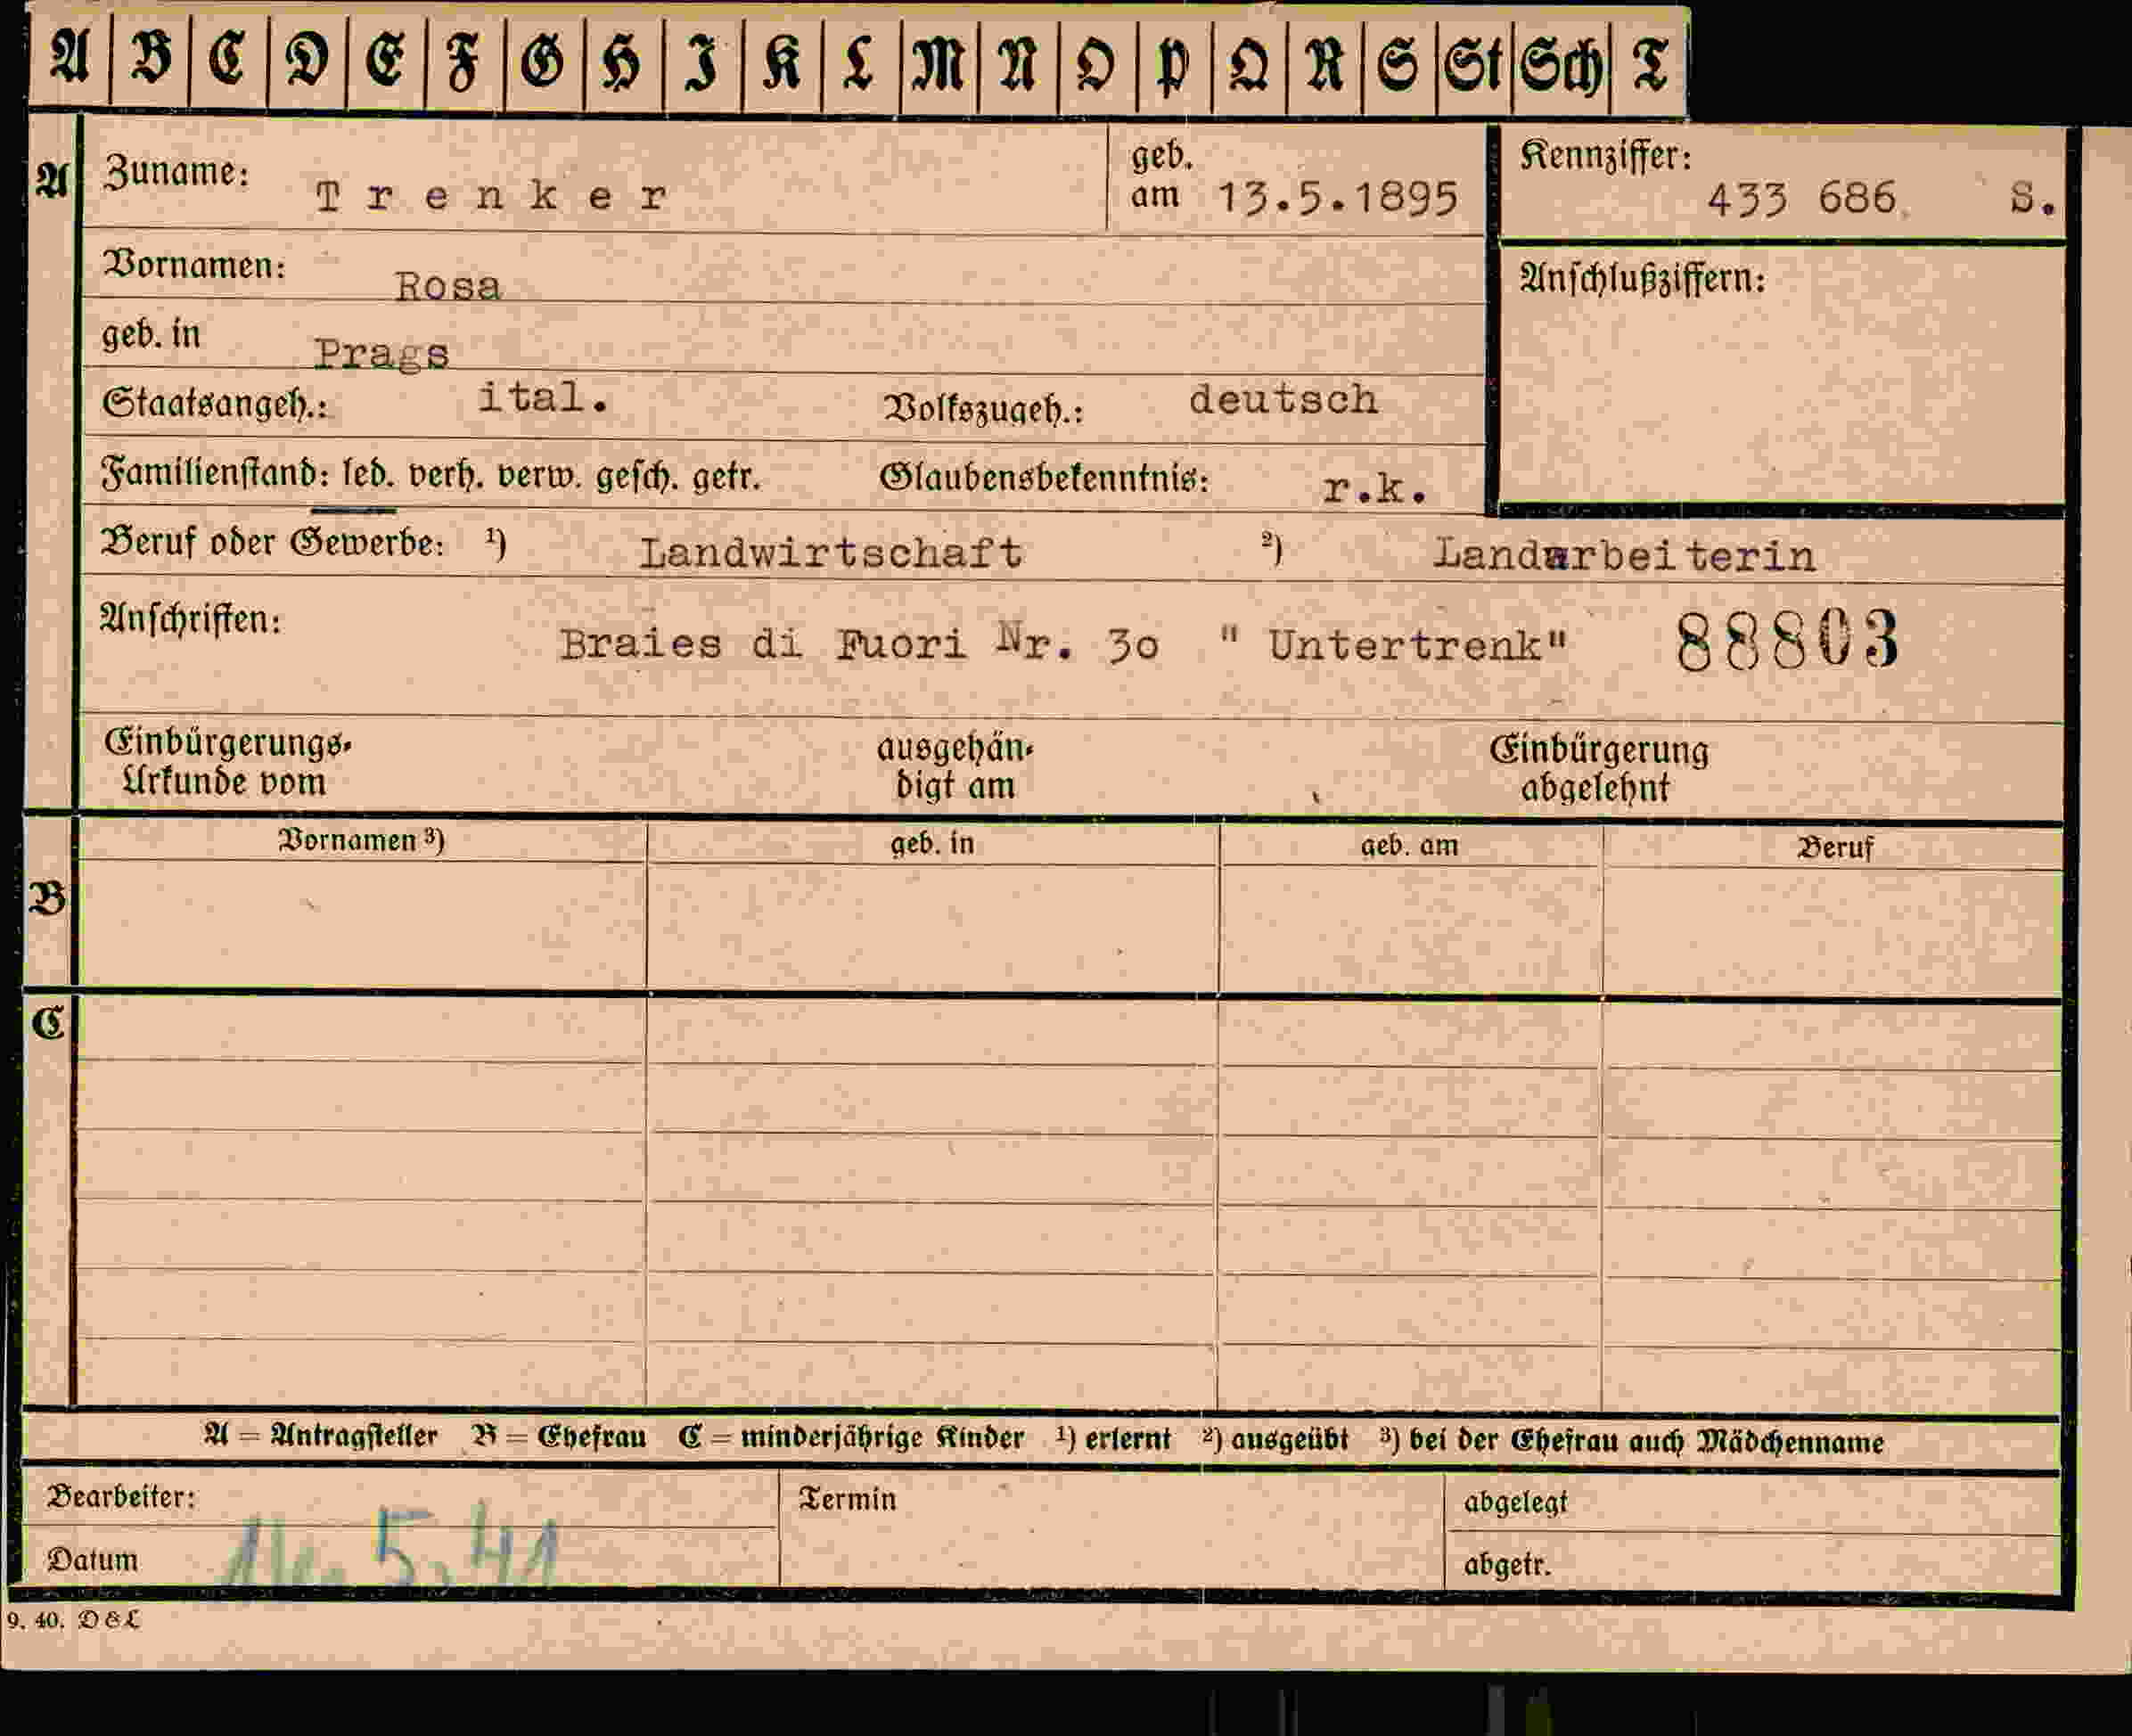 A B C D E F G H I K L M N O P Q R S St Sch T
A Zuname: Trenker geb. am 13.5.1895 Kennziffer: 433 686 S.
Vornamen: Rosa Anschlußziffern:
geb. in Prags
Staatsangeh.: ital. Volkszugeh.: deutsch
Familienstand: led. verh. verw. gesch. getr. Glaubensbekenntnis: r.k.
Beruf oder Gewerbe: ¹) Landwirtschaft ²) Landarbeiterin
Anschriften: Braies di Fuori Nr. 30 " Untertrenk" 88803
Einbürgerungs- ausgehän- Einbürgerung
Urkunde vom digt am abgelehnt
B Vornamen ³) geb. in geb. am Beruf
C
A = Antragsteller B = Ehefrau C = minderjährige Kinder ¹) erlernt ²) ausgeübt ³) bei der Ehefrau auch Mädchenname
Bearbeiter: Termin abgelegt
Datum 5.41 abgetr.
9. 40. D & L